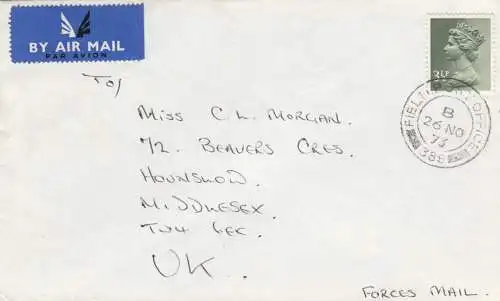 BY AIR MAIL
PAR AVION
To/
Miss C. L. Morgan.
72. Beavers Cres.
Hounslow.
Middlesex.
TW4 6EC.
UK.
Forces Mail.
FIELD POST OFFICE
B
26 NO
73
388